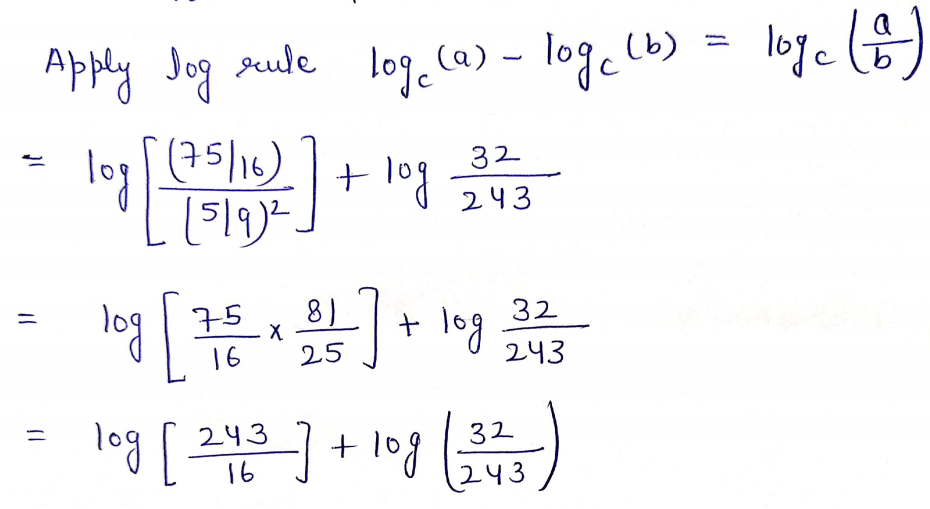 Apply log rule log_c (a) - log_c (b) = log_c (a/b)
= log [(75/16) / (5/9)²] + log 32/243
= log [75/16 x 81/25] + log 32/243
= log [243/16] + log (32/243)